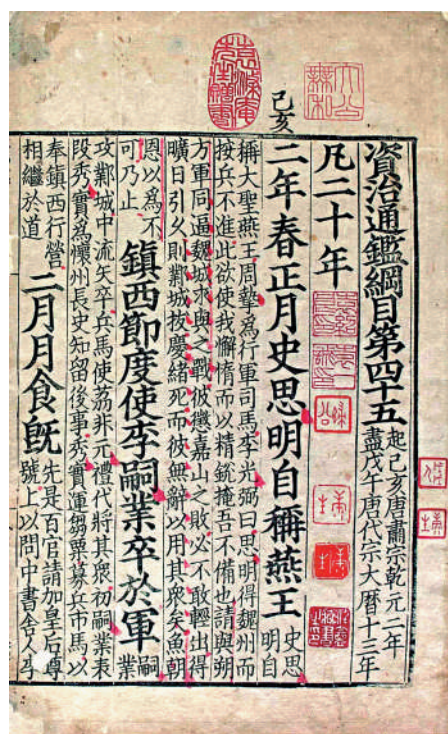 己亥
資治通鑑綱目第四十五
起己亥唐肅宗乾元二年
盡戊午唐代宗大曆十三年
凡二十年
二年春正月史思明自稱燕王
史思
明自
稱大聖燕王周摯為行軍司馬李光弼曰思明得魏州而
按兵不進此欲使我懈惰而以精銳掩吾不備也請與朔
方軍同逼魏城求與之戰彼懲嘉山之敗必不敢輕出得
曠日引久則鄴城拔慶緒死而彼無辭以用其衆矣魚朝
恩以為不
可乃止
鎮西節度使李嗣業卒於軍
嗣
業
攻鄴城中流矢卒兵馬使荔非元禮代將其衆初嗣業表
段秀實為懷州長史知留後事秀實運芻粟募兵市馬以
奉鎮西行營
相繼於道
二月月食既
先是百官請加皇后尊
號上以問中書舍人李
大公無私
袁滌庵先生贈書